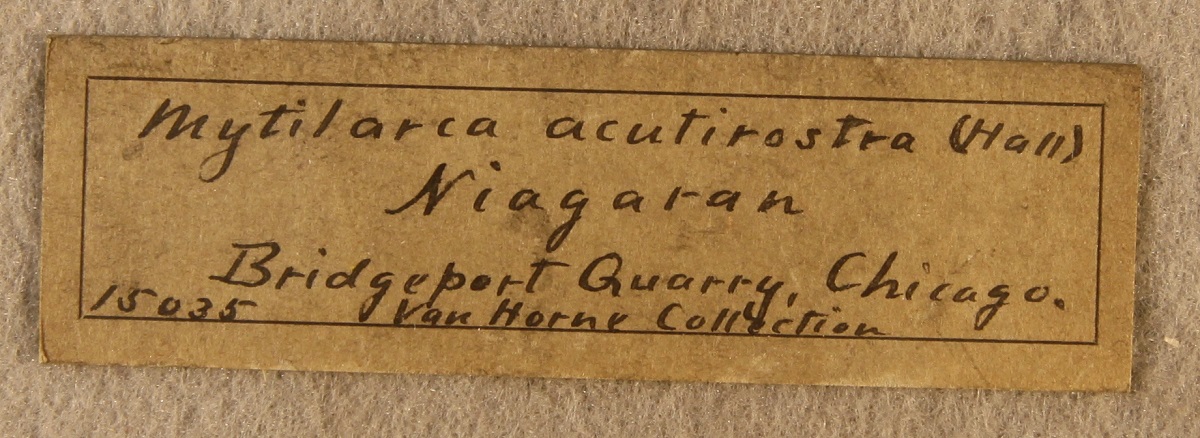 Mytilarca acutirostra (Hall)
Niagaran
Bridgeport Quarry, Chicago.
15035 Van Horne Collection